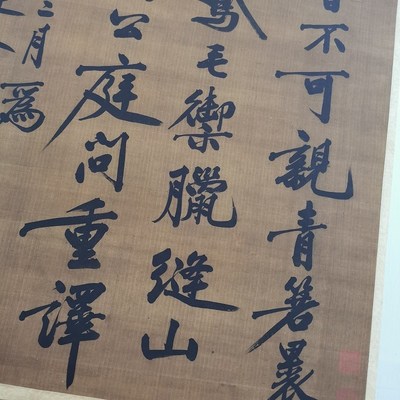 音不可親青箬裹
鵝毛禦臘縫山
公庭問重譯
三月爲